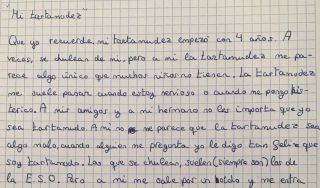 "Mi tartamudez"
Que yo recuerde, mi tartamudez empezó con 4 años. A
veces, se chulean de mi, pero a mi la tartamudez me pa-
rece algo único que muchos niños no tienen. La tartamudez
me suele pasar cuando estoy nervioso o cuando me pongo his-
térico. A mis amigos y a mi hermano no les importa que yo
sea tartamudo. A mi no me parece que la tartamudez sea
algo malo, cuando alguien me pregunta yo le digo tan feliz que
soy tartamudo. Los que se chulean, suelen (siempre son) los de
la E.S.O. Pero a mi me sale por un oído y me entra